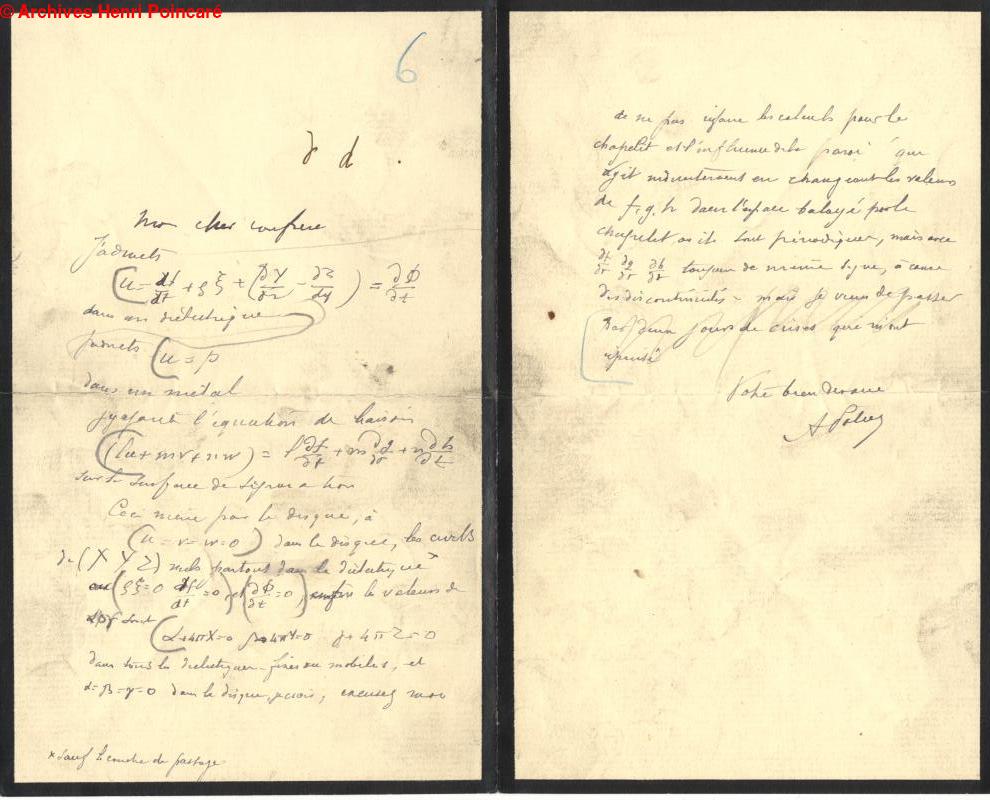 © Archives Henri Poincaré
6
∂ d .
Mon cher confrere
J'admets
(u = df/dt + ρξ + (∂γ/∂z - ∂β/∂y) = ∂Φ/∂t
dans un dielectrique
J'admets (u = p
dans un métal
J'ajoute l'équation de liaison
(lu + mv + nw) = l ∂f/∂t + m ∂g/∂t + n ∂h/∂t
sur la surface de séparation
Ceci mène pour le disque, à
(u = v = w = 0) dans le disque, les curls
de (X Y Z) nuls partout dans le dielectrique x
(ρξ = 0 df/dt = 0), et (∂Φ/∂t = 0), enfin les valeurs de
αβγ sont (α + 4πX = 0 β + 4πY = 0 γ + 4πZ = 0
dans tous les dielectriques fixes ou mobiles, et
α = β = γ = 0 dans le disque, excusez moi
x sauf la couche de passage
de ne pas refaire les calculs pour le
chapelet et l'influence de la paroi que
agit indirectement en changeant les valeurs
de f, g, h dans l'espace balayé par le
chapelet où ils sont périodiques, mais avec
∂f/∂t ∂g/∂t ∂h/∂t toujours de même signe, à cause
des discontinuités – mais je viens de passer
par deux jours de crises qui m'ont
épuisé
Votre bien devoué
A Potier